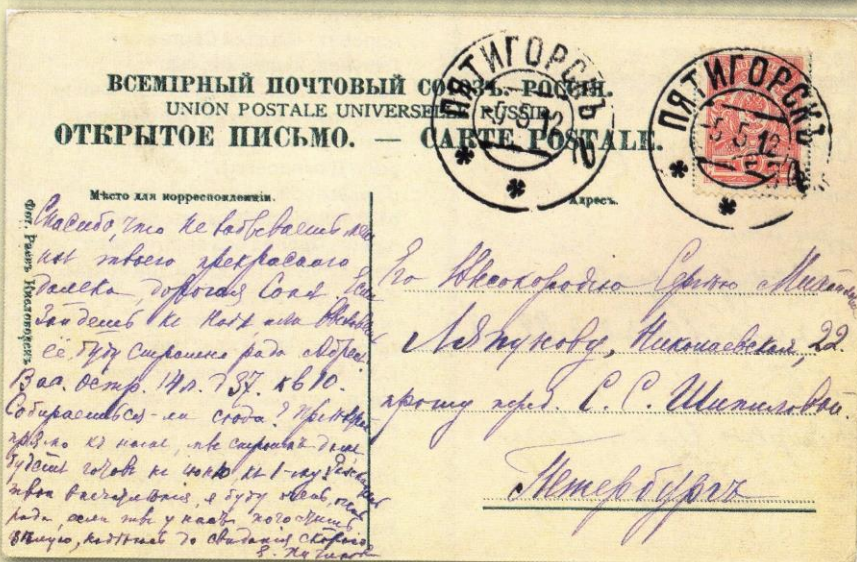 ВСЕМІРНЫЙ ПОЧТОВЫЙ СОЮЗЪ. РОССІЯ.
UNION POSTALE UNIVERSELLE. RUSSIE.
ОТКРЫТОЕ ПИСЬМО. — CARTE POSTALE.
ПЯТИГОРСКЪ
5.5.12
ПЯТИГОРСКЪ
5.5.12
Мѣсто для корреспонденціи.
Спасибо, что не забываешь
твоего прекраснаго
далека, дорогая Соня. Если
Зайдешь къ Надѣ или
ее, буду страшно рада. Адрес.
Вас. Остр. 14 л. д 37. кв 10.
Собираешься-ли сюда?
прямо къ намъ, мы строимъ домъ
будетъ готовъ къ іюню, къ 1-му.
твои впечатлѣнія, я буду очень, очень
рада, если ты у насъ погостишь
цѣлую, надѣюсь до свиданія скораго
Фот. Раевъ Кисловодскъ
Адресъ.
Его Высокородію Сергѣю
Ляпунову, Николаевская, 22.
прошу перед. С. С. Шипиловой.
Петербургъ